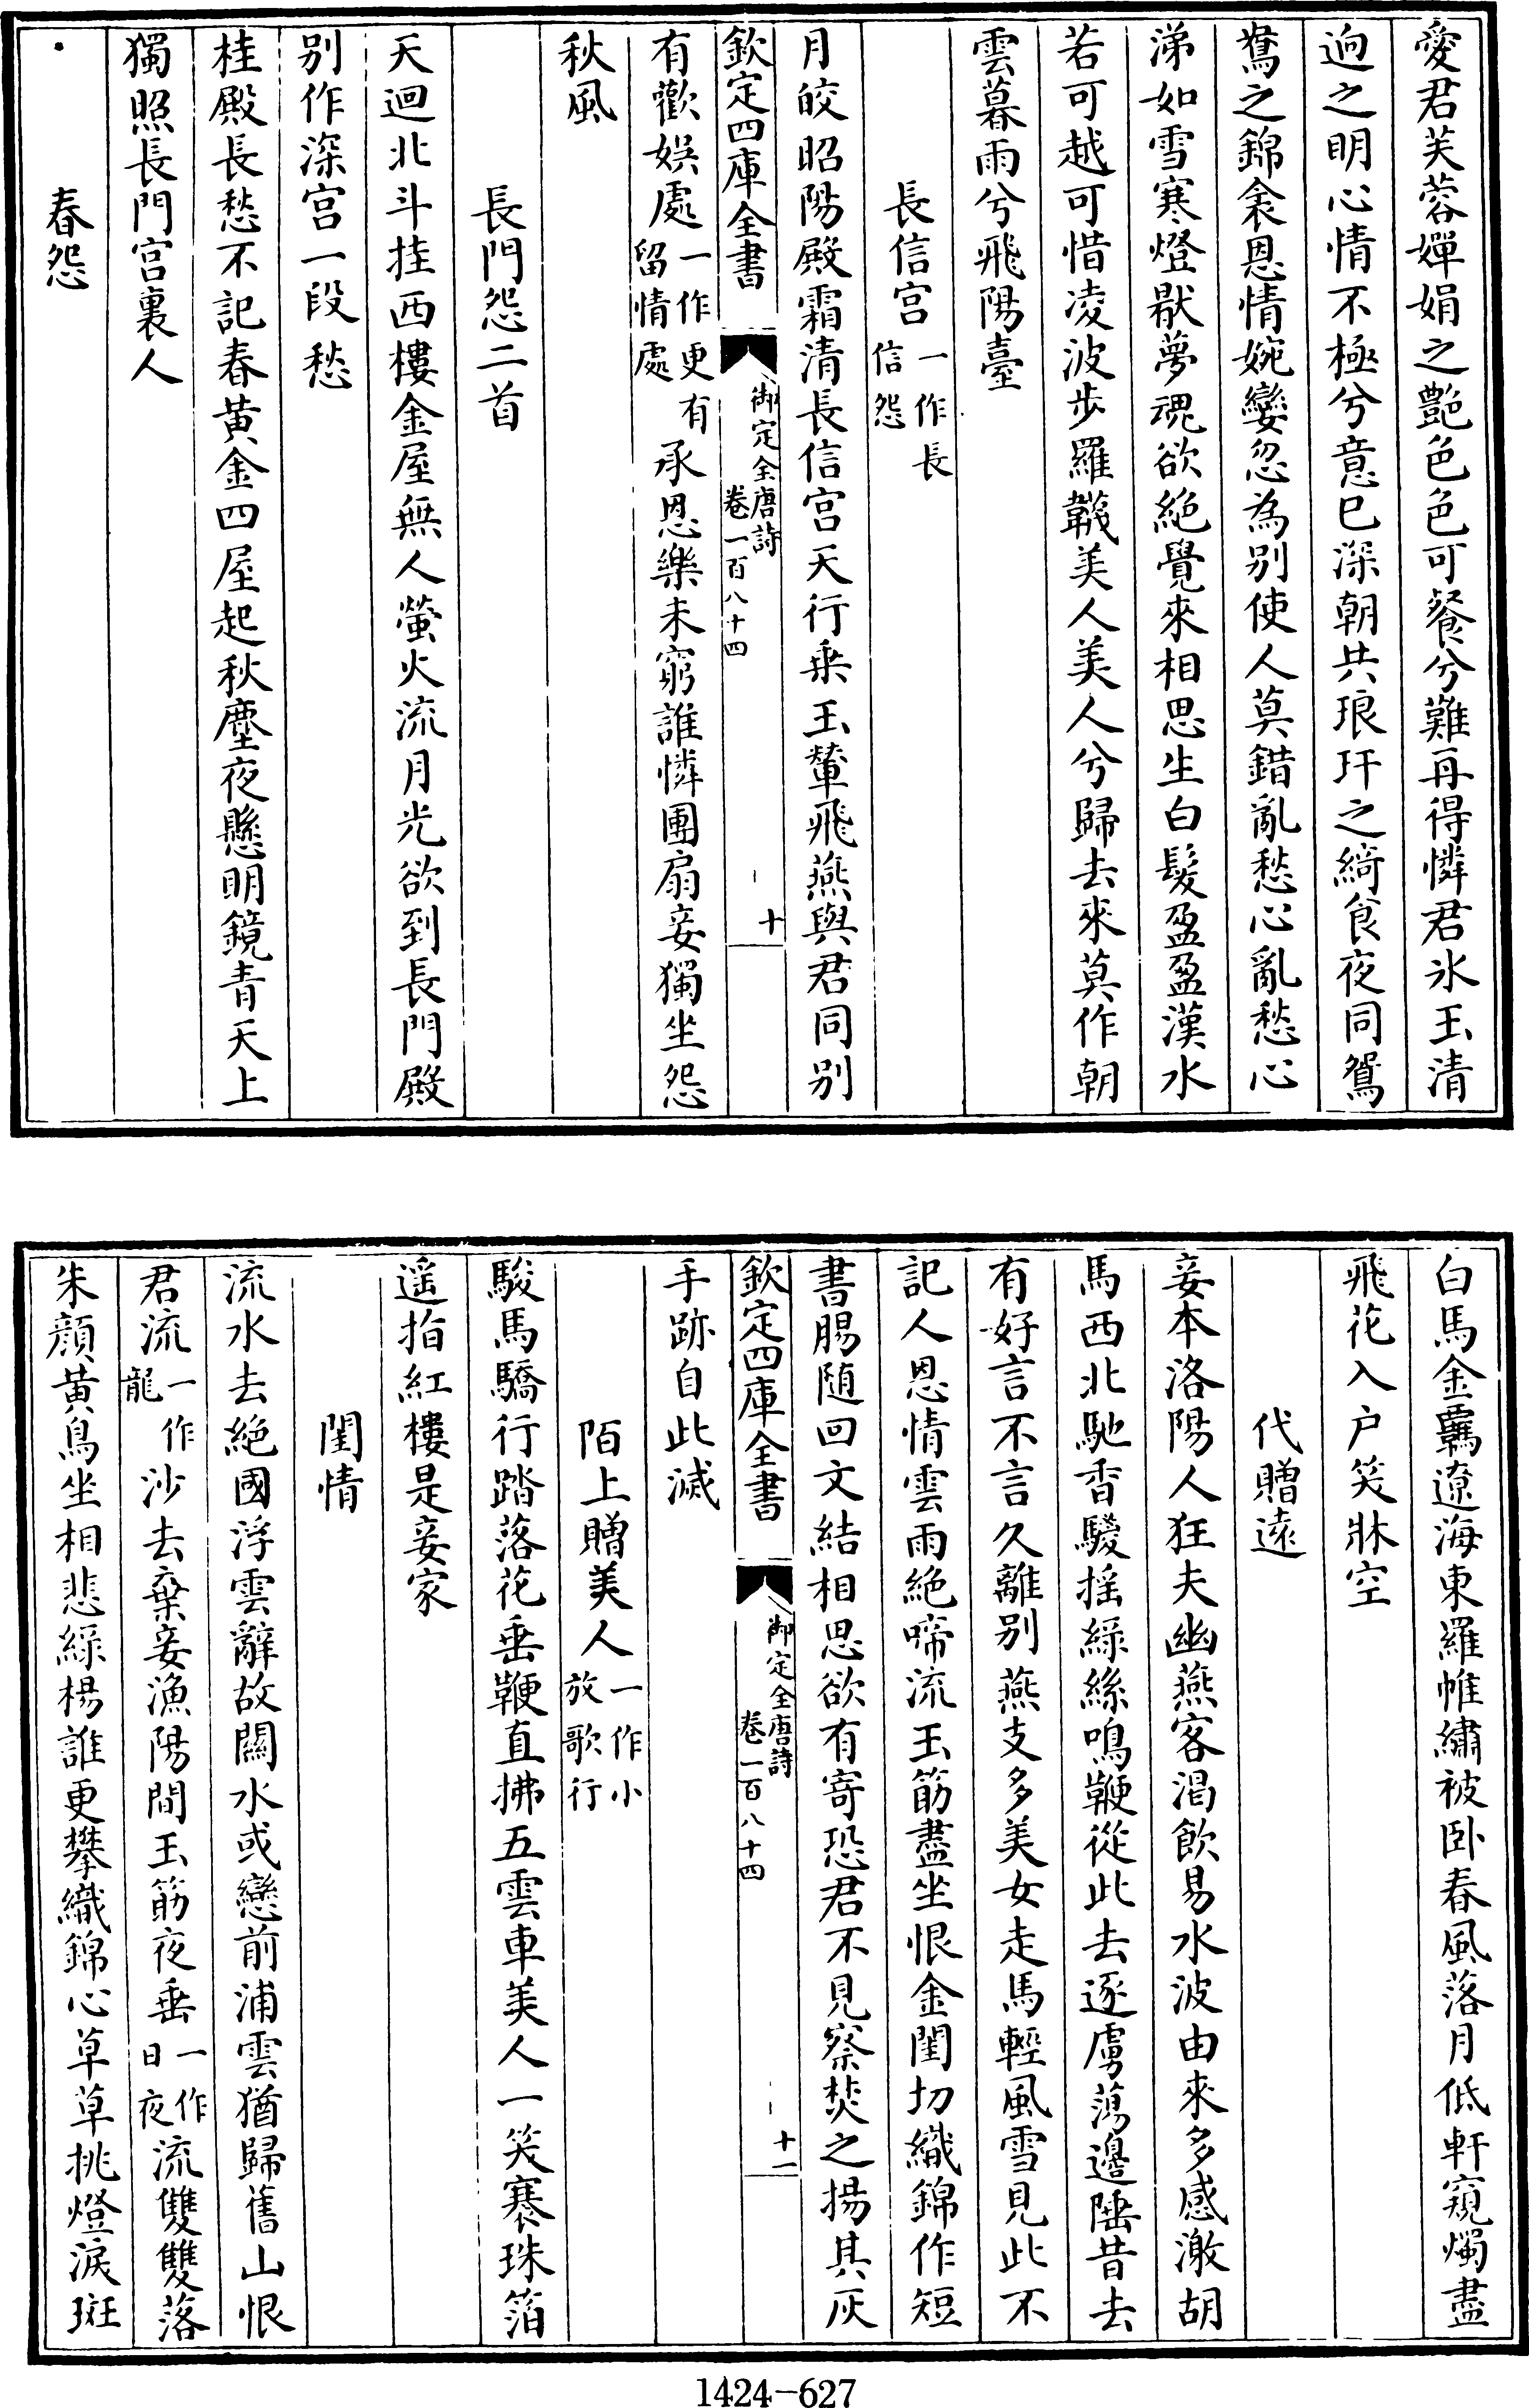 愛君芙蓉嬋娟之艷色色可餐兮難再得憐君氷玉清
逈之明心情不極兮意已深朝共琅玕之綺食夜同鴛
鴦之錦衾恩情婉孌忽為别使人莫錯亂愁心亂愁心
涕如雪寒燈厭夢魂欲絶覺來相思生白髮盈盈漢水
若可越可惜凌波步羅韈美人美人兮歸去來莫作朝
雲暮雨兮飛陽臺
長信宫一作長信怨
月皎昭陽殿霜清長信宫天行乗玉輦飛燕與君同别
欽定四庫全書
御定全唐詩
卷一百八十四
十
有歡娱處一作更有留情處承恩樂未窮誰憐團扇妾獨坐怨
秋風
長門怨二首
天迴北斗挂西樓金屋無人螢火流月光欲到長門殿
别作深宫一段愁
桂殿長愁不記春黄金四屋起秋塵夜懸明鏡青天上
獨照長門宫裏人
春怨
白馬金羈遼海東羅帷繡被卧春風落月低軒窺燭盡
飛花入户笑牀空
代贈遠
妾本洛陽人狂夫幽燕客渴飲易水波由來多感激胡
馬西北馳香騣摇緑絲鳴鞭從此去逐虜蕩邊陲昔去
有好言不言久離别燕支多美女走馬輕風雪見此不
記人恩情雲雨絶啼流玉筯盡坐恨金閨切織錦作短
書腸随回文結相思欲有寄恐君不見察焚之揚其灰
欽定四庫全書
御定全唐詩
卷一百八十四
十一
手跡自此滅
陌上贈美人一作小放歌行
駿馬驕行踏落花垂鞭直拂五雲車美人一笑褰珠箔
遥指紅樓是妾家
閨情
流水去絶國浮雲辭故關水或戀前浦雲猶歸舊山恨
君流一作龍沙去棄妾漁陽間玉筯夜垂一作日夜流雙雙落
朱顔黄鳥坐相悲緑楊誰更攀織錦心草草挑燈淚斑
1424-627